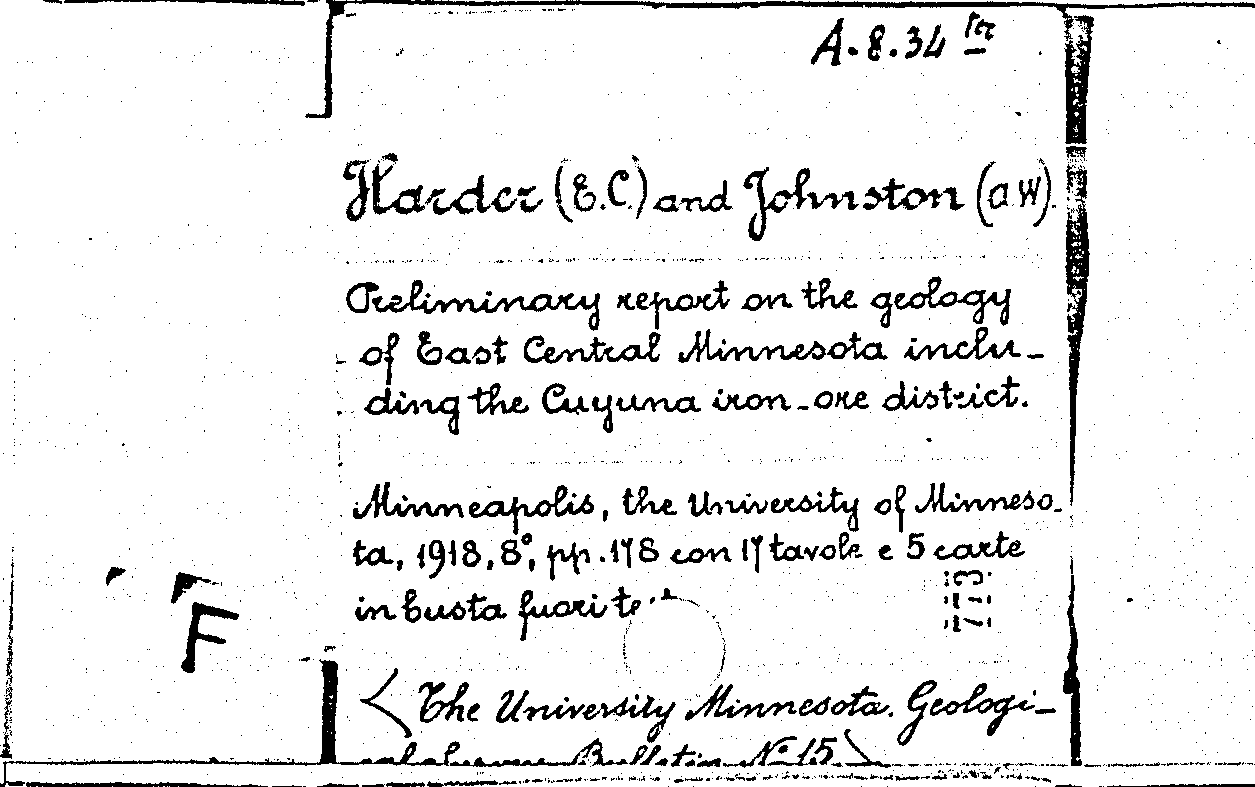 A.8.34 ter
Harder (E.C.) and Johnston (a.W).
Preliminary report on the geology
of East Central Minnesota inclu-
ding the Cuyuna iron-ore district.
Minneapolis, the University of Minneso-
ta, 1918, 8°, pp. 178 con 17 tavole e 5 carte
in busta fuori
F
(The University Minnesota. Geologi-
Bulletin N° 15)